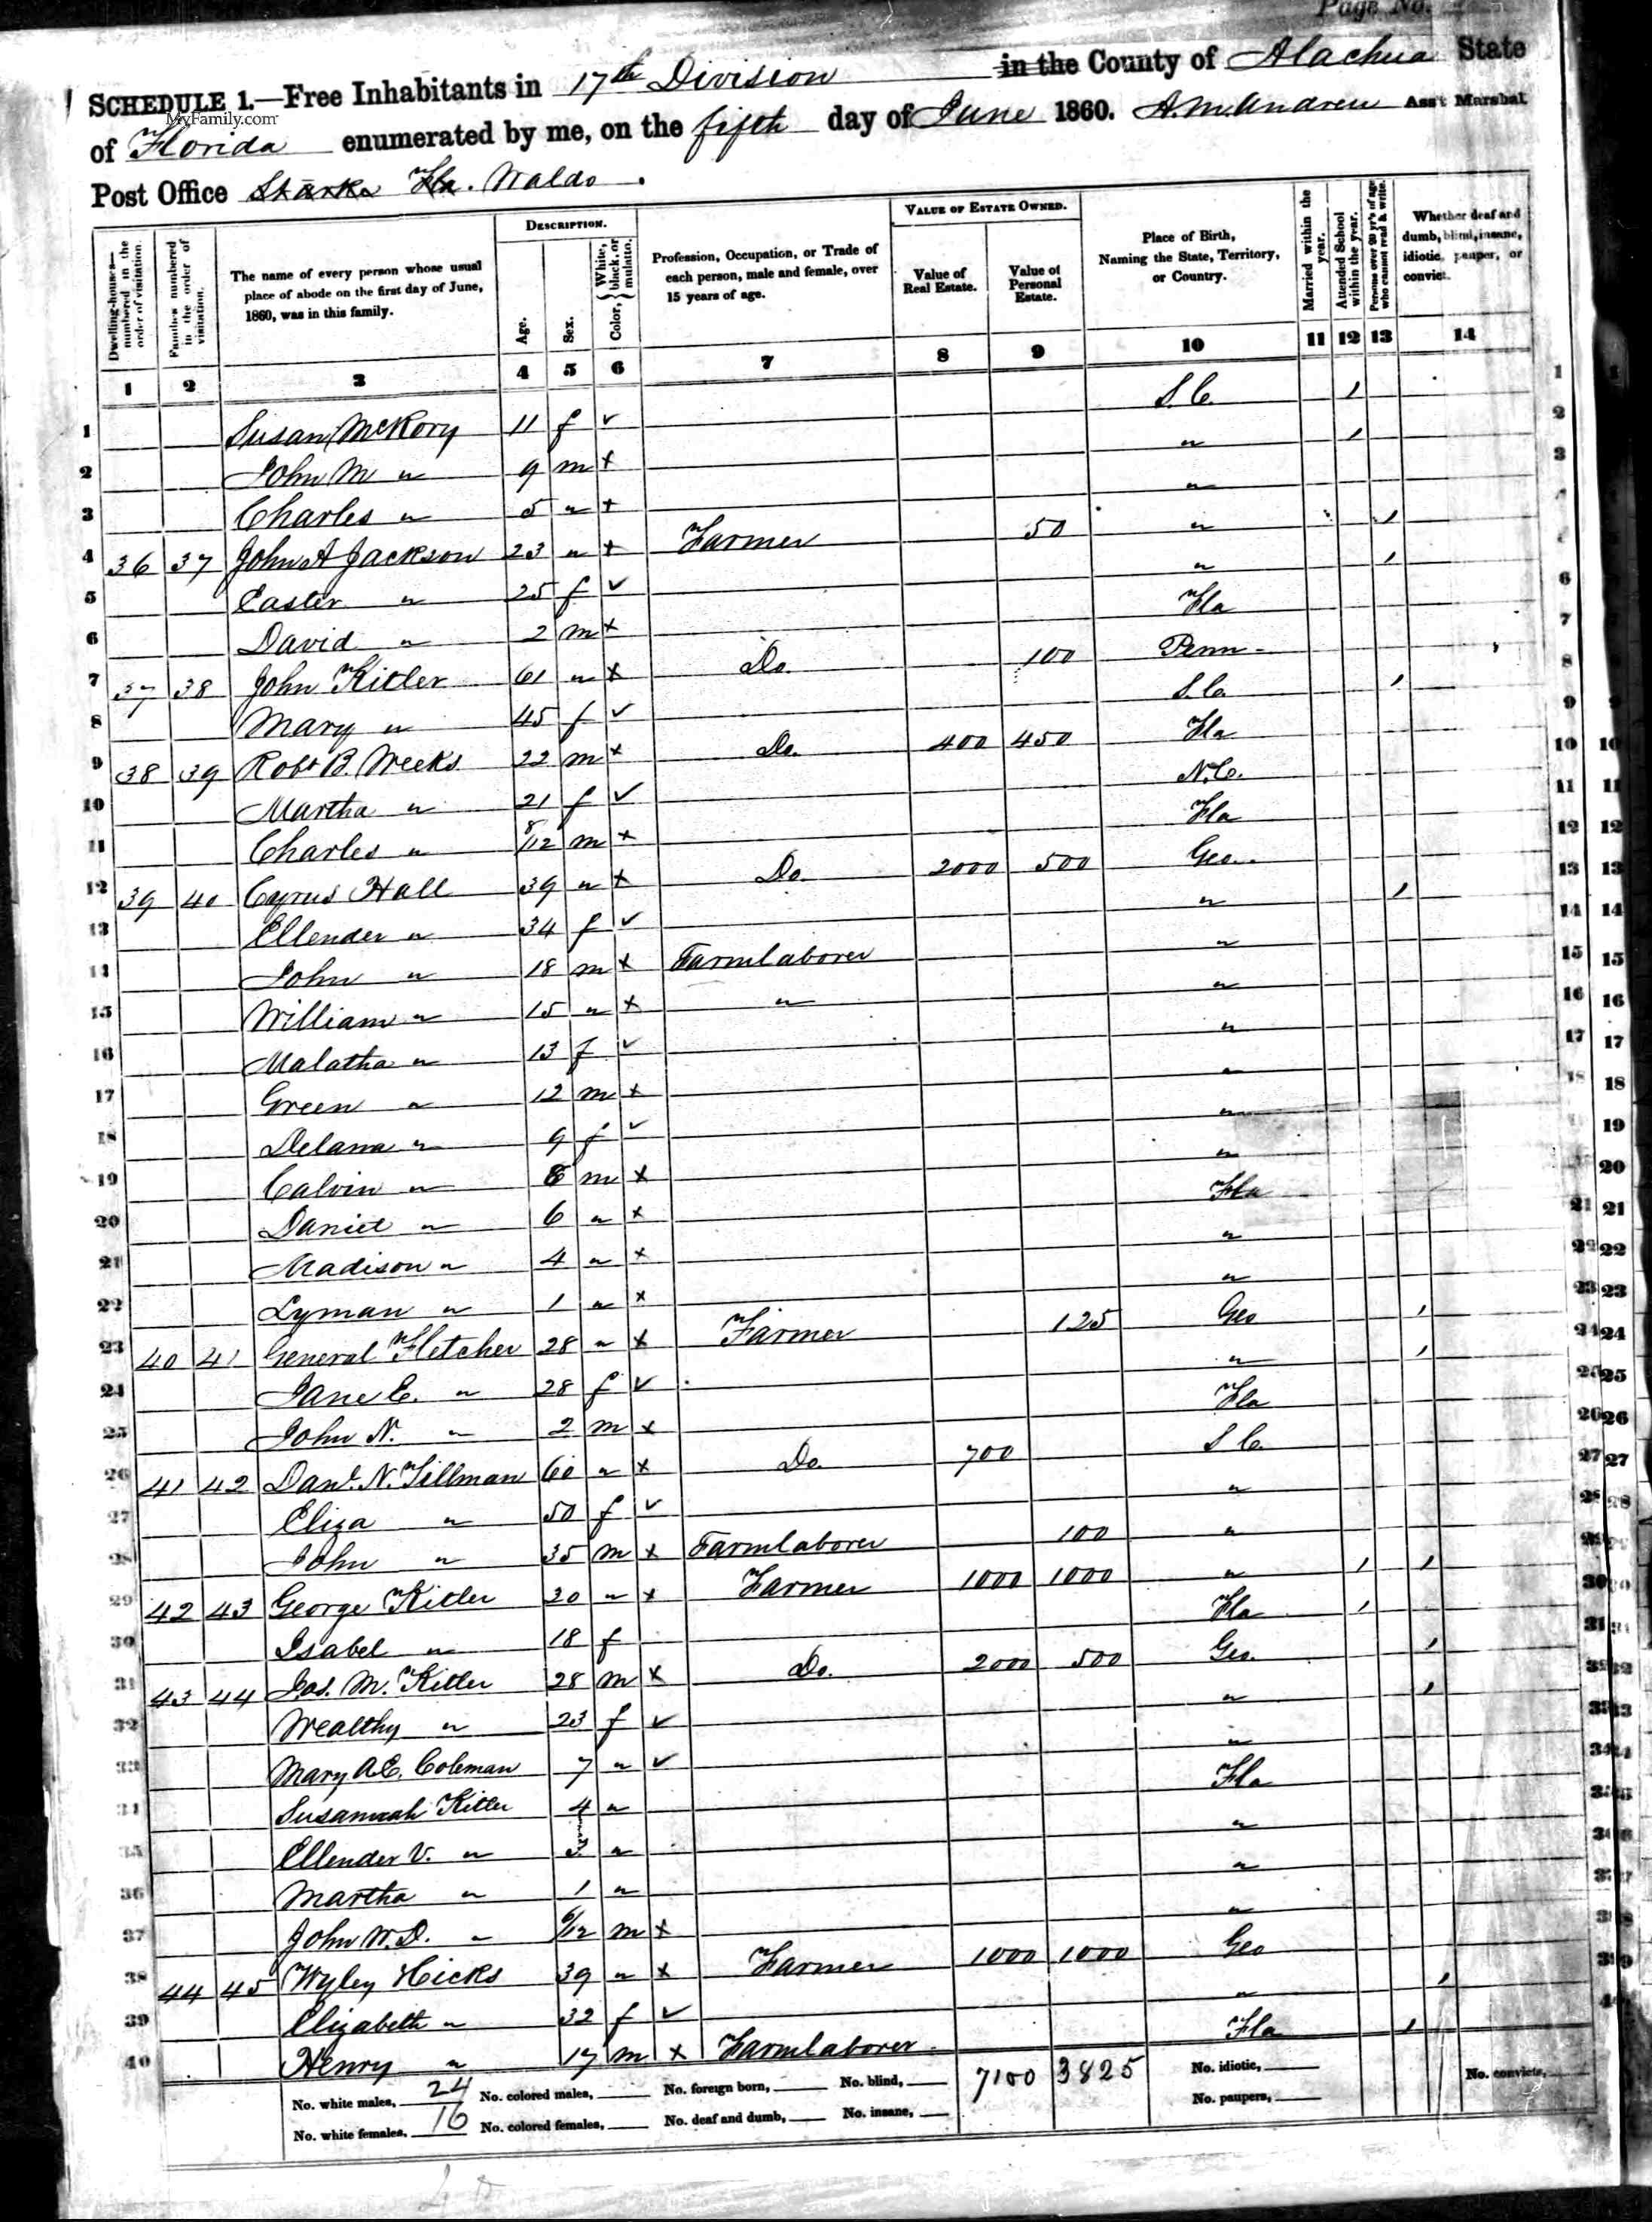 Page No.
SCHEDULE 1.—Free Inhabitants in 17th Division in the County of Alachua State
MyFamily.com
of Florida enumerated by me, on the fifth day of June 1860. A. M. Andreu Ass't Marshal
Post Office Starke Fla. Waldo.
Dwelling-houses—numbered in the order of visitation. Families numbered in the order of visitation. The name of every person whose usual place of abode on the first day of June, 1860, was in this family. DESCRIPTION. Age. Sex. Color, { White, black, or mulatto. Profession, Occupation, or Trade of each person, male and female, over 15 years of age. VALUE OF ESTATE OWNED. Value of Real Estate. Value of Personal Estate. Place of Birth, Naming the State, Territory, or Country. Married within the year. Attended School within the year. Persons over 20 yr's of age who cannot read & write. Whether deaf and dumb, blind, insane, idiotic, pauper, or convict.
1 2 3 4 5 6 7 8 9 10 11 12 13 14
1 Susan McKory 11 f ✓ S.C. / 1
2 John M " 9 m x " / 2
3 Charles " 5 " x " 3
4 36 37 John A Jackson 23 " x Farmer 50 " /
5 Easter " 25 f ✓ " /
6 David " 2 m x Fla 6
7 37 38 John Kitler 61 " x Do. 100 Penn 7
8 Mary " 45 f ✓ S.C. / 8
9 38 39 Robt B. Weeks 22 m x Do. 400 450 Fla 9
10 Martha " 21 f ✓ N.C. 10 10
11 Charles " 8/12 m x Fla 11 11
12 39 40 Cyrus Hall 39 " x Do. 2000 500 Geo. 12 12
13 Ellender " 34 f ✓ " / 13 13
14 John " 18 m x Farmlaborer " 14 14
15 William " 15 " x " " 15 15
16 Malatha " 13 f ✓ " 16 16
17 Green " 12 m x " 17 17
18 Delana " 9 f ✓ " 18 18
19 Calvin " 8 m x " 19
20 Daniel " 6 " x Fla 20
21 Madison " 4 " x " 21 21
22 Lyman " 1 " x " 22 22
23 40 41 General Fletcher 28 " x Farmer 125 Geo / 23 23
24 Jane E. " 28 f ✓ " / 24 24
25 John N. " 2 m x Fla 25 25
26 41 42 Danl. N. Tillman 60 " x Do 700 S C. 26 26
27 Eliza " 50 f ✓ " 27 27
28 John " 35 m x Farmlaborer 100 " 28 28
29 42 43 George Kitler 20 " x Farmer 1000 1000 " / /
30 Isabel " 18 f Fla / 30
31 43 44 Jas. M. Kitler 28 m x Do. 2000 500 Geo. / 31
32 Wealthy " 23 f ✓ " / 32
33 Mary A.E. Coleman 7 " ✓ " 33
34 Susannah Kitler 4 " Fla 34
35 Ellender V. " 3 " " 35
36 Martha " 1 " " 36
37 John W.D. " 6/12 m x " 37
38 44 45 Wyley Hicks 39 " x Farmer 1000 1000 Geo 38
39 Elizabeth " 32 f ✓ " / 39
40 Henry " 17 m x Farmlaborer Fla /
No. white males, 24 No. colored males, No. foreign born, No. blind, 7100 3825 No. idiotic, No. convicts,
No. white females, 16 No. colored females, No. deaf and dumb, No. insane, No. paupers,